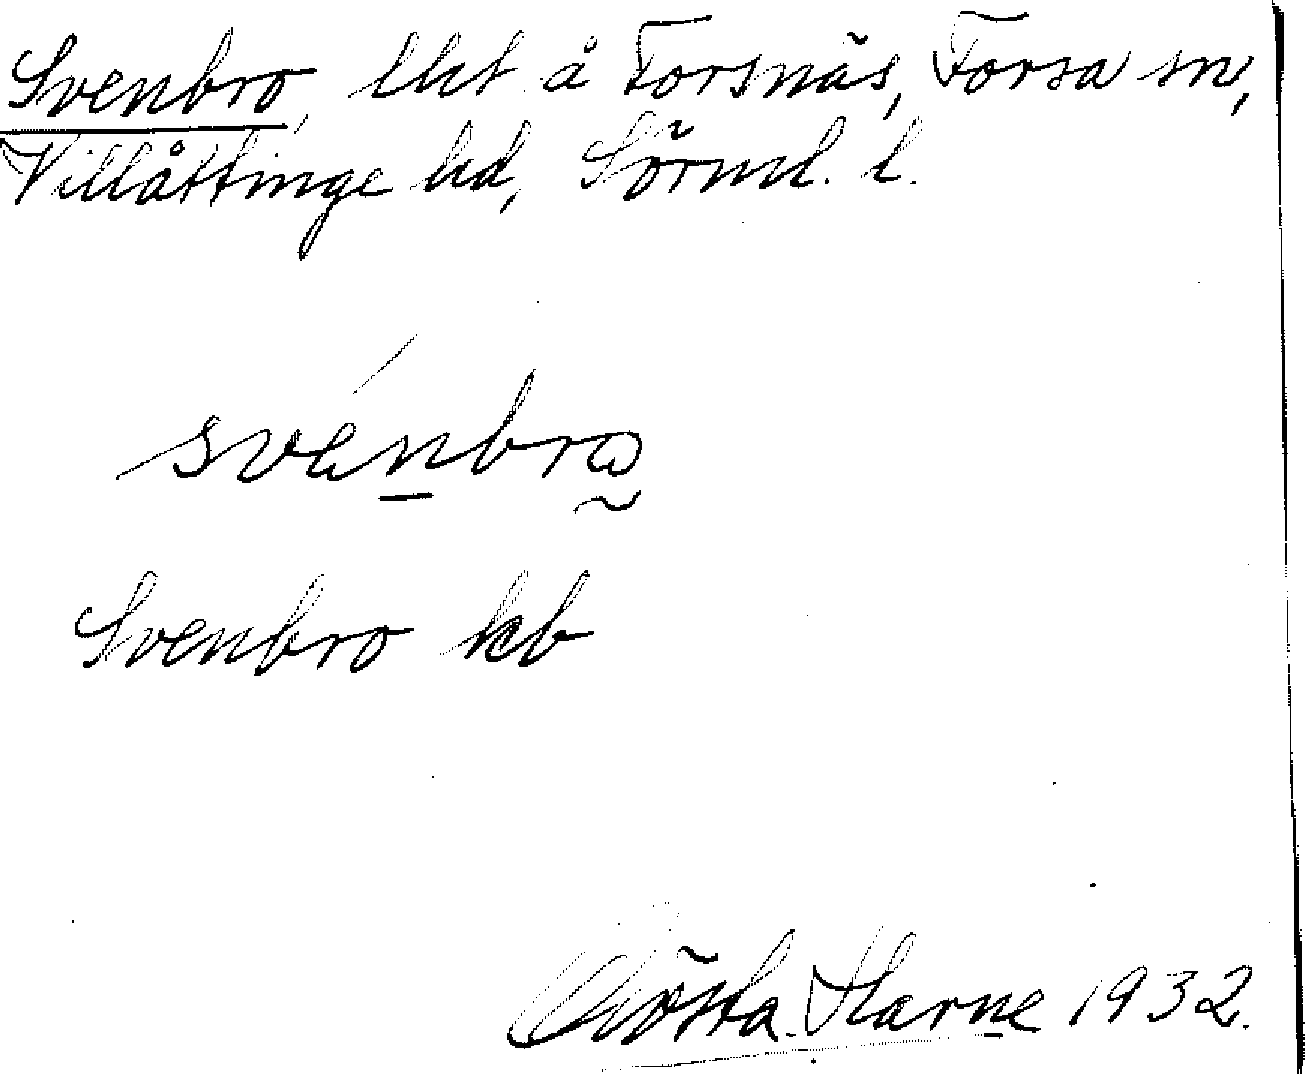 Svenbro, lht å Forsnäs, Forsa sn,
Villåttinge hd, Sörml. l.
svénbro
Svenbro kb
Gösta Harne 1932.